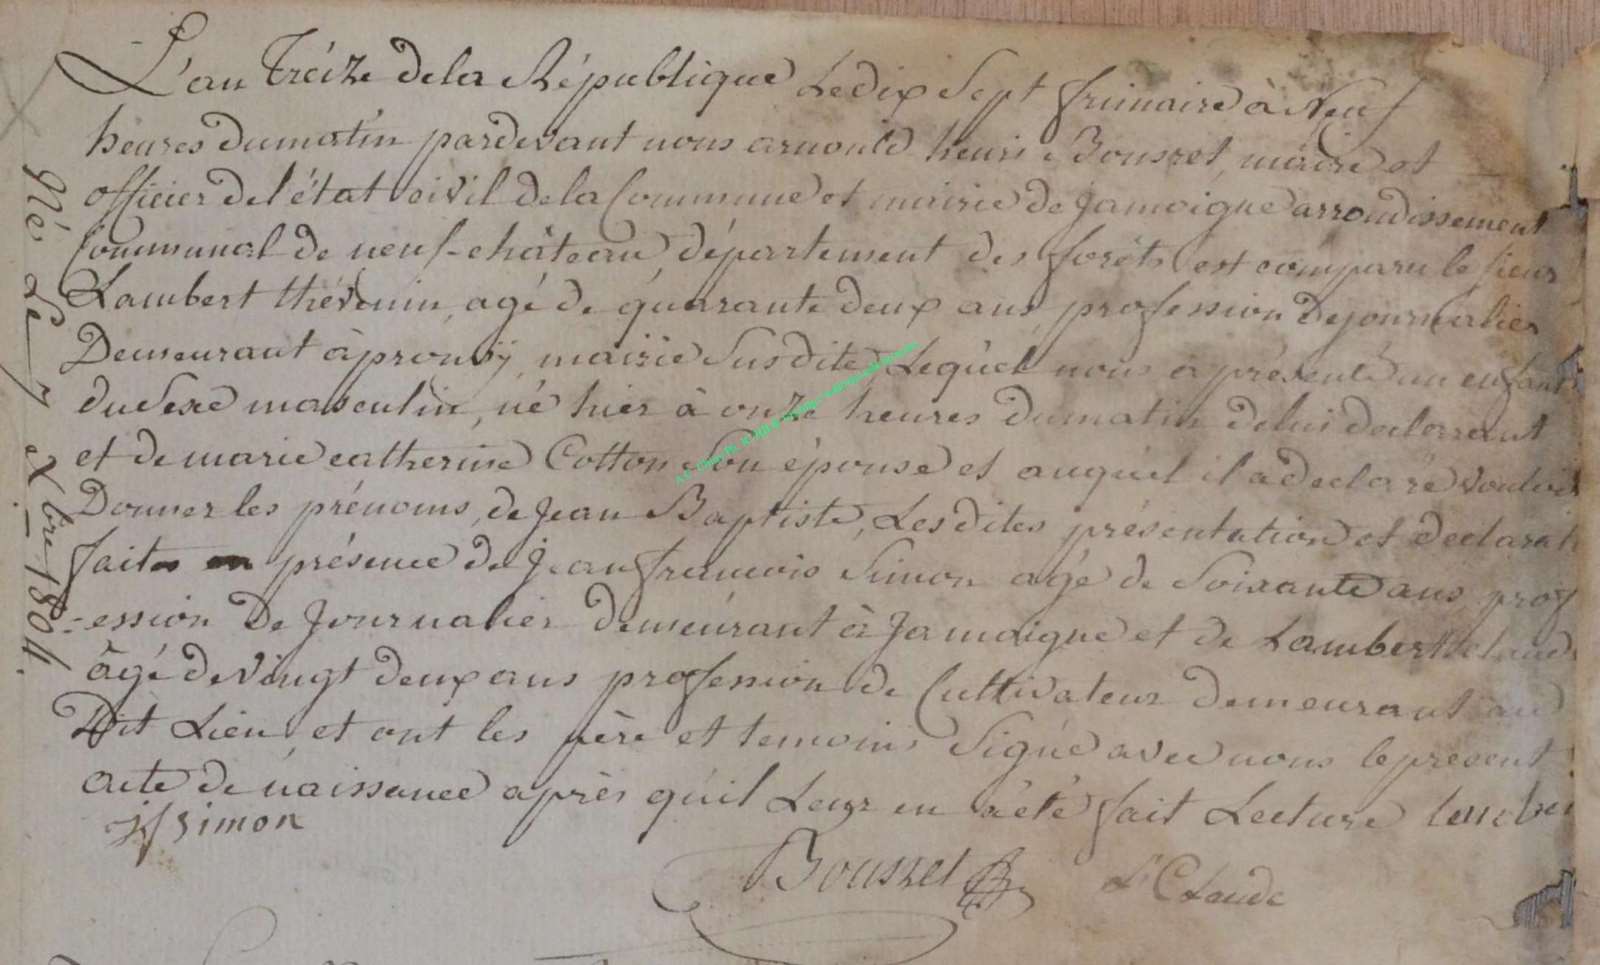 L'an Treize de la République Le dix Sept frimaire à Neuf
heures du matin pardevant nous arnould henri Bousret, maire et
officier de l'état civil de la Commune et mairie de Jamoigne arrondissement
Communal de neuf-château, département des forêts est comparu le sieur
Lambert thévenin, agé de quarante deux ans profession de journalier
Demeurant à prouvÿ, mairie Susdite, Lequel nous a présenté un enfant
du Sexe masculin, né hier à onze heures du matin de lui declarant
et de marie catherine Cotton Son épouse et auquel il a declaré vouloir
Donner les prénoms, de Jean Baptiste, Les dites présentation et declarat
faites en présence de Jean francois Simon agé de Soixante ans prof
-ession De Journalier demeurant à Jamoigne et de Lambert Claude
âgé de vingt deux ans profession de Cultivateur demeurant au
Dit Lieu et ont les père et temoins Signé avec nous le present
acte de naissance après qu'il Leur en a été fait Lecture
jf simon
Bousret
L Claude
Né Le 7 Xbre 1804.